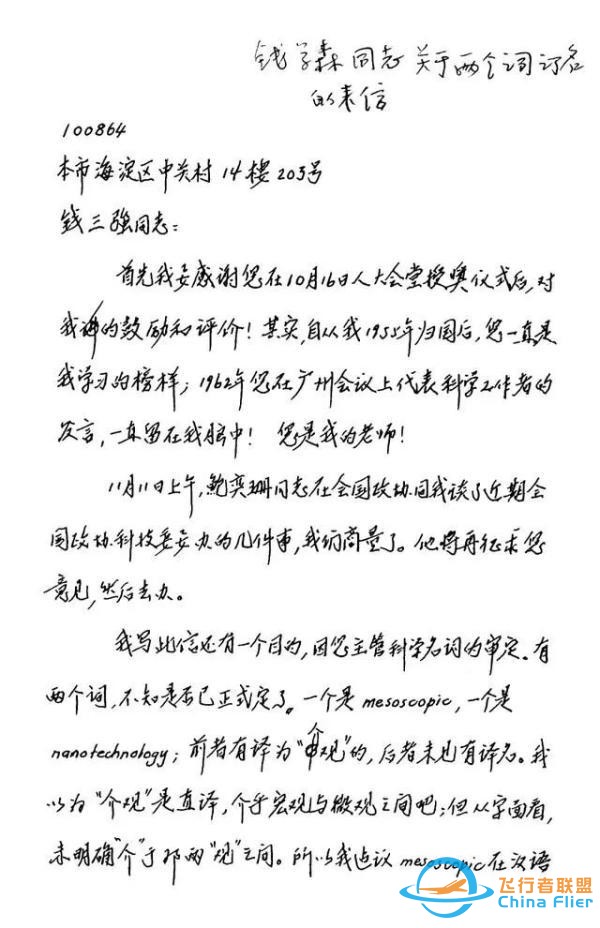 钱学森同志关于两个词订名
的来信
100864
本市海淀区中关村14楼203号
钱三强同志：
首先我要感谢您在10月16日人大会堂授奖仪式后，对
我讲的鼓励和评价！其实，自从我1955年归国后，您一直是
我学习的榜样；1962年您在广州会议上代表科学工作者的
发言，一直留在我脑中！ 您是我的老师！
11月11日上午，鲍奕珊同志在全国政协同我谈了近期全
国政协科技委要办的几件事，我们商量了。他将再征求您
意见，然后去办。
我写此信还有一个目的，因您主管科学名词的审定。有
两个词，不知是否已正式定了。一个是 mesoscopic，一个是
nanotechnology；前者有译为“介观”的，后者未见有译名。我
以为“介观”是直译，介乎宏观与微观之间吧；但从字面看，
未明确“介”于那两“观”之间。所以我建议 mesoscopic 在汉语
飞行者联盟
China Flier